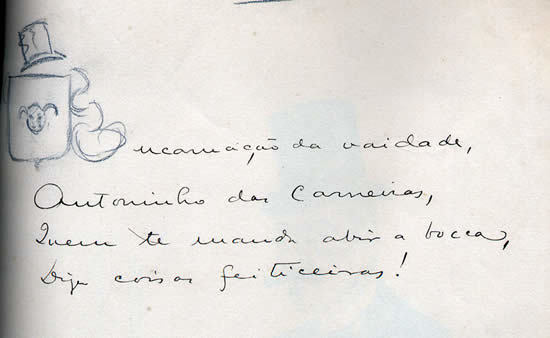 Encarnação da vaidade,
Antoninho das Carneiras,
Quem te manda abrir a bocca,
Diga coisas feiticeiras!